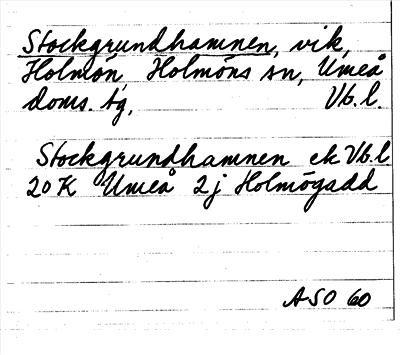 Stockgrundhamnen, vik,
Holmön, Holmöns sn, Umeå
doms. tg, Vb.l.
Stockgrundhamnen ek Vb.l
20K Umeå 2j Holmögadd
ASO 60